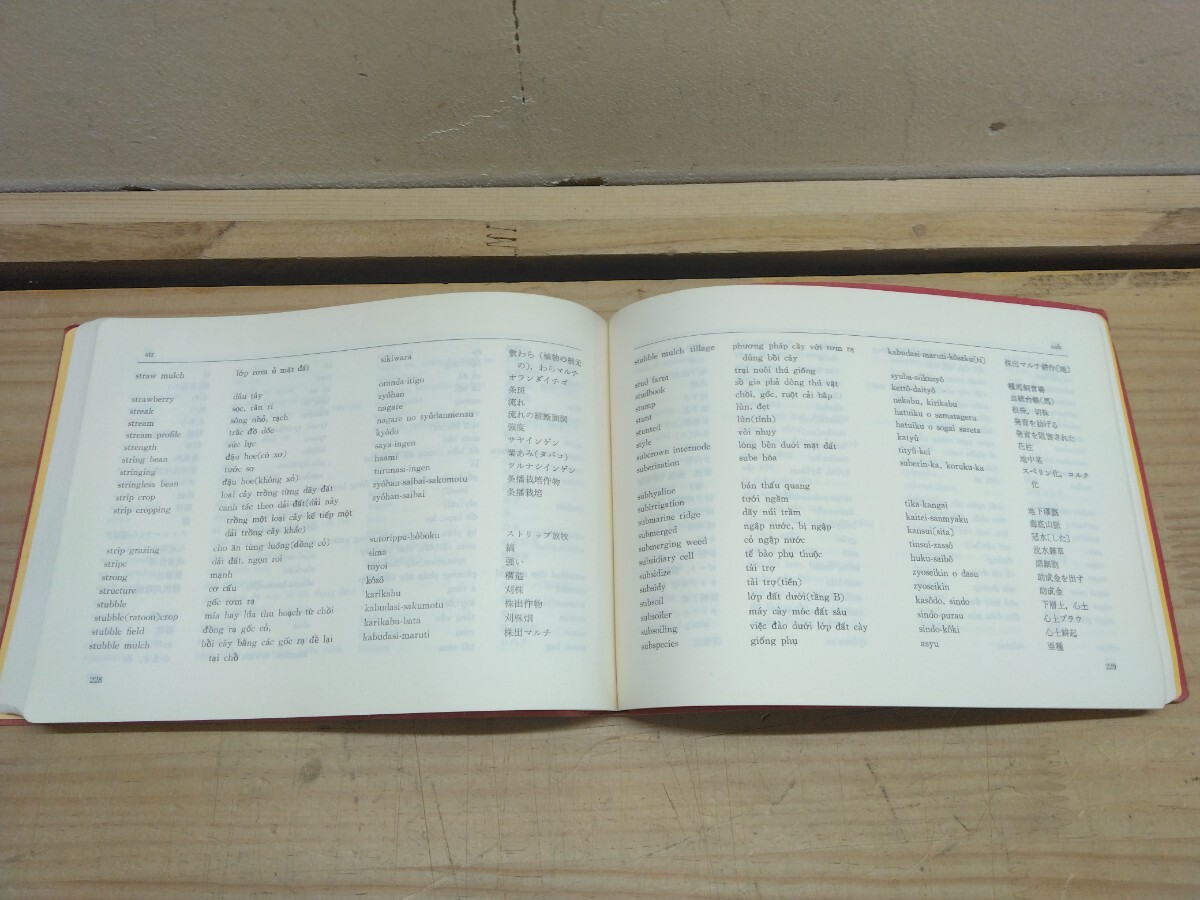 str
straw mulch lớp rơm ở mặt đất sikiwara 敷わら（植物の根元
の），わらマルチ
strawberry dâu tây oranda-itigo オランダイチゴ
streak sọc, rằn ri zyôhan 条斑
stream sông nhỏ, rạch nagare 流れ
stream profile trắc đồ dốc nagare no syôdanmenzu 流れの縦断面図
strength sức lực kyôdo 強度
string bean đậu hoe(có xơ) saya-ingen サヤインゲン
stringing tước sơ haami 葉あみ(タバコ)
stringless bean đậu hoe(không xơ) turunasi-ingen ツルナシインゲン
strip crop loại cây trồng từng dãy đất zyôhan-saibai-sakumotu 条播栽培作物
strip cropping canh tác theo dải đất(dải này zyôhan-saibai 条播栽培
trồng một loại cây kế tiếp một
dải trồng cây khác)
strip grazing cho ăn từng luống(đồng cỏ) sutorippu-hôboku ストリップ放牧
stripe dải đất, ngọn roi sima 縞
strong mạnh tuyoi 強い
structure cơ cấu kôzô 構造
stubble gốc rơm rạ karikabu 刈株
stubble(ratoon)crop mía hay lúa thu hoạch từ chồi kabudasi-sakumotu 株出作物
stubble field đồng rạ gốc cỏ, karikabu-bata 刈株畑
stubble mulch bồi cây bằng các gốc rạ để lại kabudasi-maruti 株出マルチ
tại chỗ
228
sub
stubble mulch tillage phương pháp cày với rơm rạ kabudasi-maruti-kôsaku(H) 株出マルチ耕作(地)
dùng bồi cây
stud farm trại nuôi thú giống syuba-siikusyô 種馬飼育場
studbook sổ gia phả dòng thú vật kettô-daityô 血統台帳(馬)
stump chồi, gốc, ruột cải bắp nekabu, kirikabu 根株，切株
stunt lùn, đẹt hatuiku o samatageru 発育を妨げる
stunted lùn(tính) hatuiku o sogai sareta 発育を阻害された
style vòi nhụy katyû 花柱
subcrown internode lóng bên dưới mặt đất tityû-kei 地中茎
suberization sube hóa suberin-ka, koruku-ka スベリン化，コルク
化
subhyaline bán thấu quang
subirrigation tưới ngầm tika-kangai 地下灌漑
submarine ridge dãy núi trầm kaitei-sanmyaku 海底山脈
submerged ngập nước, bị ngập kansui(sita) 冠水[した]
submerging weed cỏ ngập nước tinsui-zassô 沈水雑草
subsidiary cell tế bào phụ thuộc huku-saibô 副細胞
subsidize tài trợ zyoseikin o dasu 助成金を出す
subsidy tài trợ(tiền) zyoseikin 助成金
subsoil lớp đất dưới(tầng B) kasôdo, sindo 下層土，心土
subsoiler máy cày móc đất sâu sindo-purau 心土プラウ
subsoiling việc đào dưới lớp đất cày sindo-kôki 心土耕起
subspecies giống phụ asyu 亜種
229